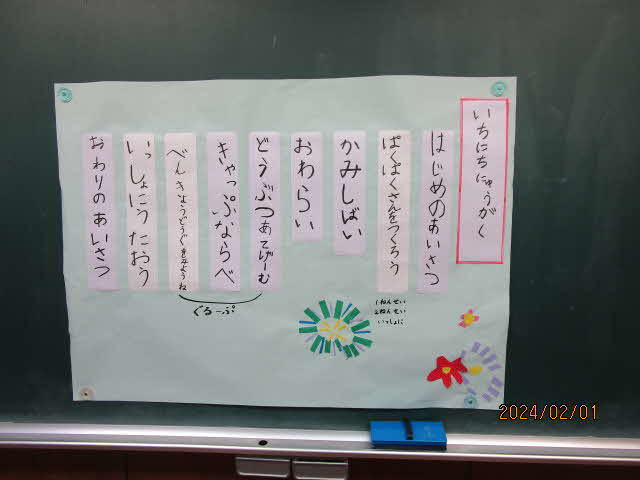 いちにちにゅうがく
はじめのあいさつ
ぱくぱくさんをつくろう
かみしばい
おわらい
どうぶつあてげーむ
きゃっぷならべ
べんきょうどうぐをみようね
いっしょにうたおう
おわりのあいさつ
ぐるーぷ
1ねんせい
2ねんせい
いっしょに
2024/02/01